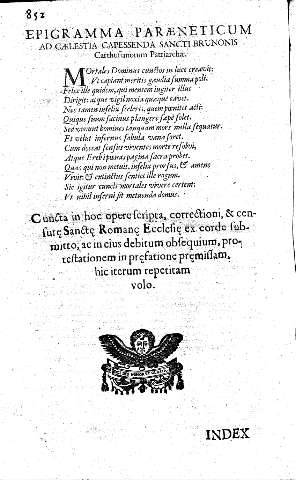 852
EPIGRAMMA PARÆNETICUM
AD CÆLESTIA CAPESSENDA SANCTI BRUNONIS
Carthusianorum Patriarchæ.
MOrtales Dominus cunctos in luce creavit:
Ut capiant meritis gaudia summa poli.
Felix ille quidem, qui mentem jugiter illuc
Dirigit: atque vigil noxia quæque cavet.
Nec tamen infelix sceleris, quem pœnitet acti:
Quique suum facinus plangere sæpe solet.
Sed vivunt homines tanquam mors nulla sequatur:
Et velut infernus fabula vana foret.
Cum doceat sensus viventes morte resolvi,
Atque Erebi pœnas pagina sacra probet.
Quas qui non metuit, infelix prorsus, & amens
Vivit: & extinctus sentiet ille rogum.
Sic igitur cuncti mortales vivere certent:
Ut nihil inferni sit metuenda domus.
Cuncta in hoc opere scripta, correctioni, & cen-
surę Sanctę Romanę Ecclesię ex corde sub-
mitto, ac in eius debitum obsequium, pro-
testationem in pręfatione pręmissam,
hic iterum repetitam
volo.
INDEX